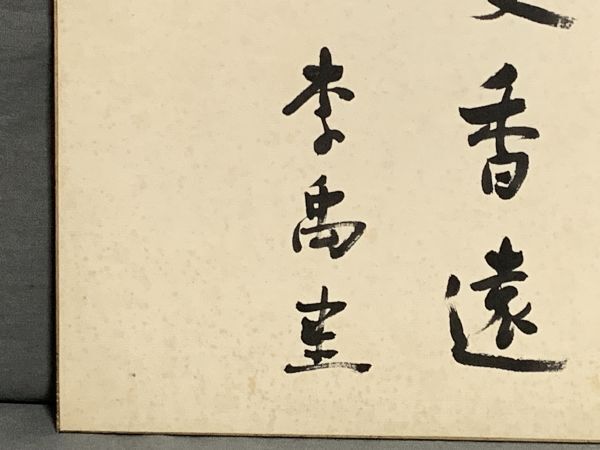 香遠
李禹圭